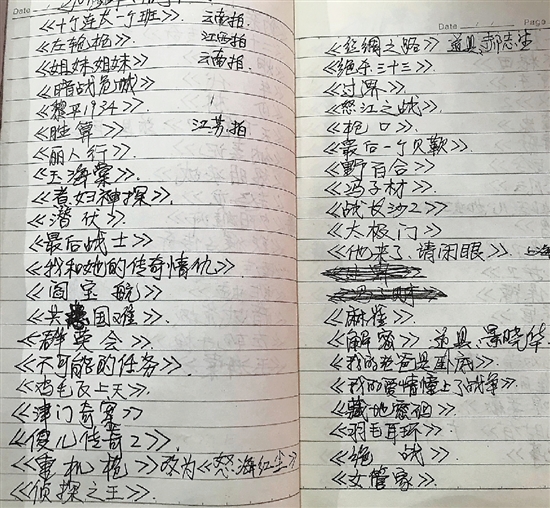 Date
《十个连长一个班》 云南拍
《左轮枪》 江西拍
《姐妹姐妹》 云南拍.
《暗战危城》
《黎平1934》.
《胜算》 江苏拍
《丽人行》.
《玉海棠》
《煮妇神探》
《潜伏》
《最后战士》
《我和她的传奇情仇》
《阎宝航》
《共患国难》
《群英会》
《不可能的任务》
《鸡毛飞上天》
《津门奇案》
《侠儿传奇2》
《重机枪》改为《怒海红尘》
《侦探之王》.
Date Page
《丝绸之路》 道具,郝志生
《绝杀三十三》
《过界》
《怒江之战》
《枪口》
《最后一个贝勒》
《野百合》
《冯子材》
《战长沙2》
《大极门》
《他来了,请闭眼》
《麻雀》
《解密》 道具,景晓华
《我的爸爸是卧底》
《我的爱情撞上了战争》
《藏地密码》
《羽毛耳环》
《绝战》
《女管家》.